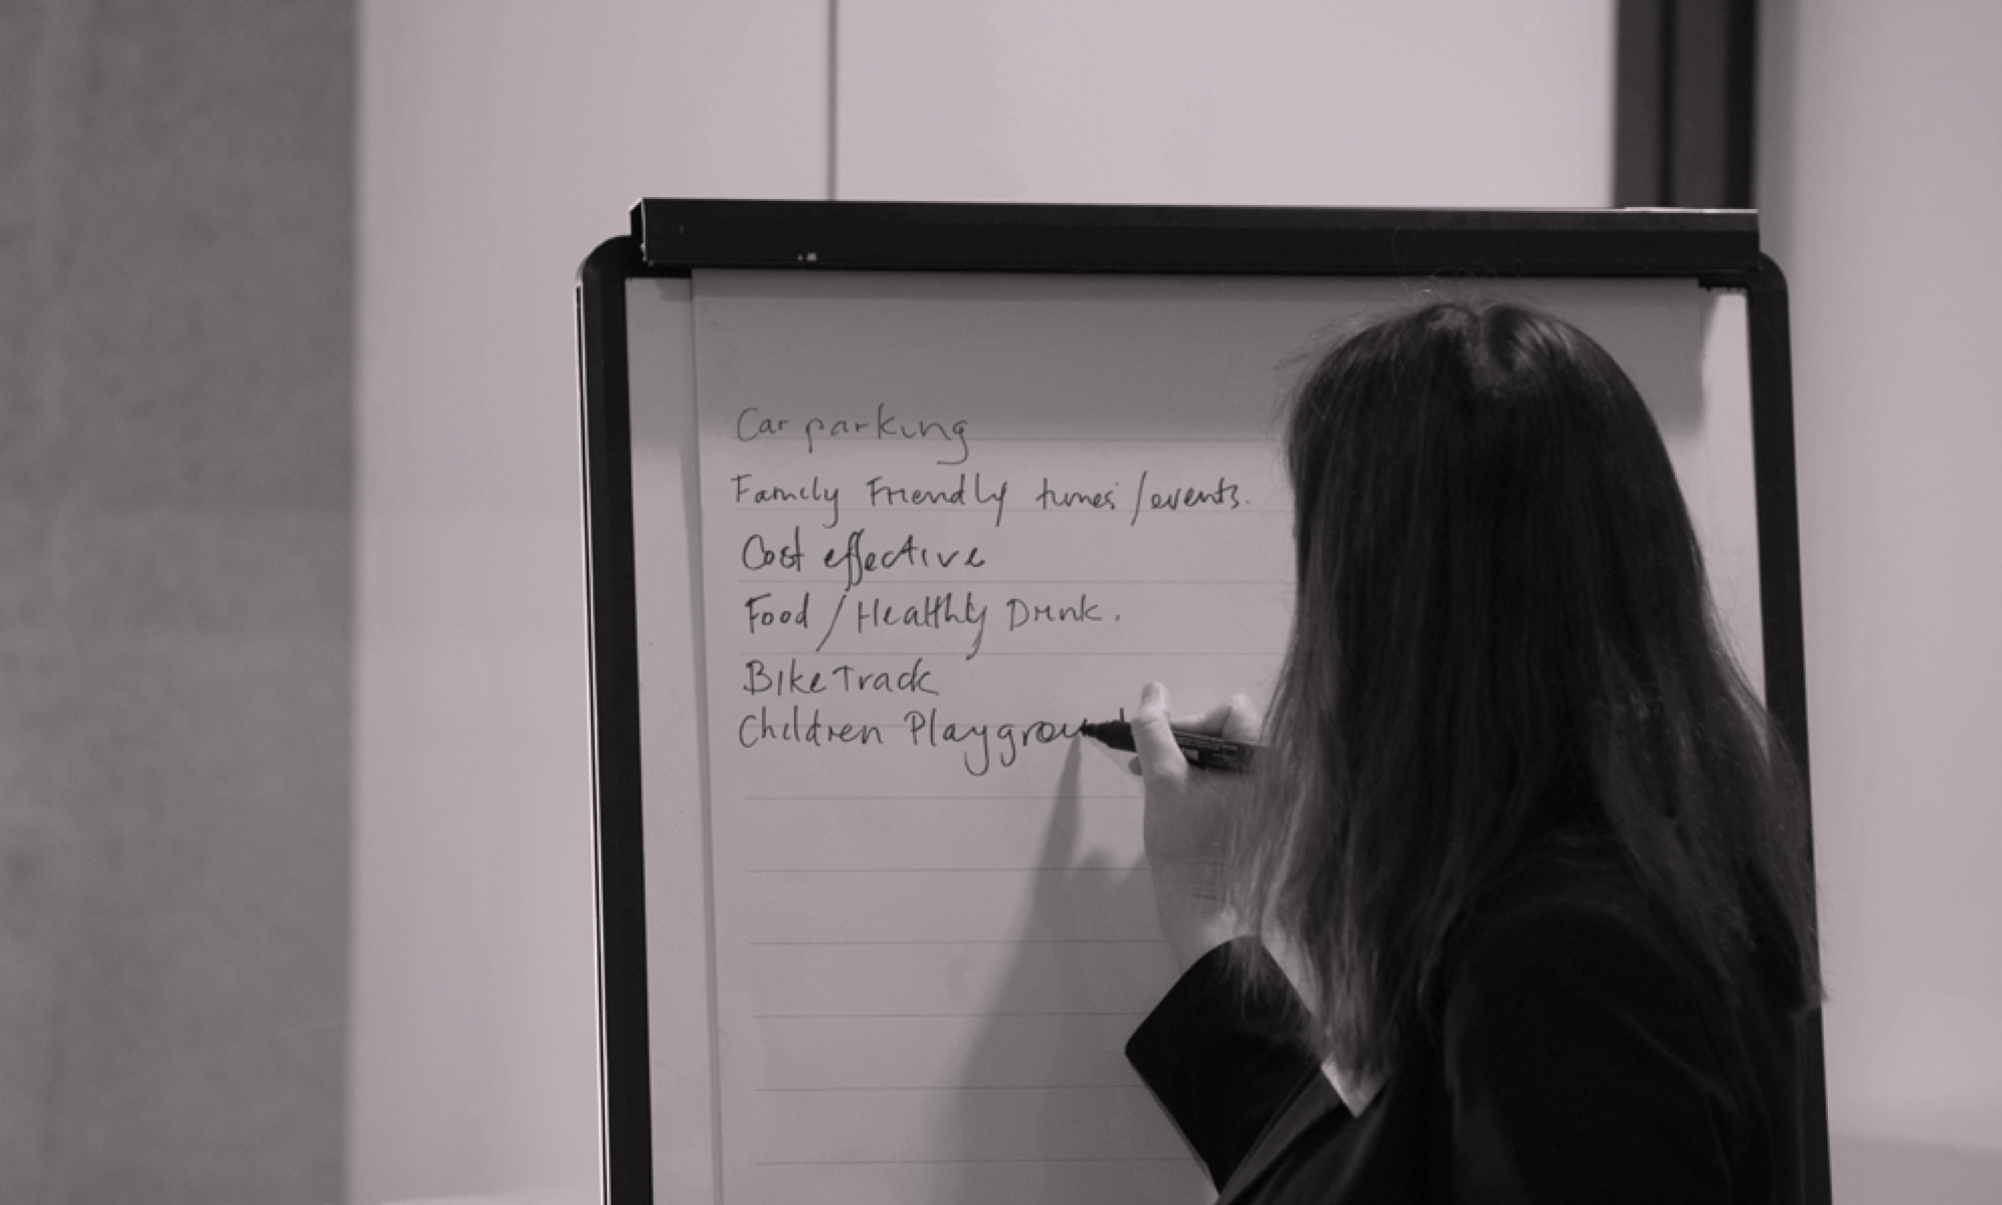 Car parking
Family Friendly times/events.
Cost effective
Food/Healthy Drink.
Bike Track
Children Playgroun